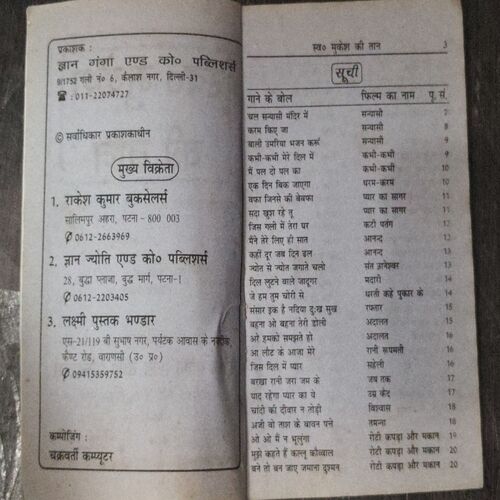 प्रकाशक :
ज्ञान गंगा एण्ड को० पब्लिशर्स
9/1752 गली नं० 6, कैलाश नगर, दिल्ली-31
☎ : 011-22074727
© सर्वाधिकार प्रकाशकाधीन
मुख्य विक्रेता
1. राकेश कुमार बुकसेलर्स
सालिमपुर अहरा, पटना - 800 003
✆ 0612-2663969
2. ज्ञान ज्योति एण्ड को० पब्लिशर्स
28, बुद्धा प्लाजा, बुद्ध मार्ग, पटना-1
✆ 0612-2203405
3. लक्ष्मी पुस्तक भण्डार
एस-21/119 बी सुभाष नगर, पर्यटक आवास के नजदीक,
कैण्ट रोड, वाराणसी (उ० प्र०)
✆ 09415359752
कम्पोजिंग :
चक्रवर्ती कम्प्यूटर
स्व० मुकेश की तान 3
सूची
गाने के बोल फिल्म का नाम पृ. सं.
चल सन्यासी मंदिर में सन्यासी 7
करम किए जा सन्यासी 8
बाली उमरिया भजन करूं सन्यासी 9
कभी-कभी मेरे दिल में कभी-कभी 9
मैं पल दो पल का कभी-कभी 10
एक दिन बिक जाएगा धरम-करम 10
वफा जिनसे की बेवफा प्यार का सागर 11
सदा खुश रहे तू प्यार का सागर 11
जिस गली में तेरा घर कटी पतंग 12
मैंने तेरे लिए ही सात आनन्द 12
कहीं दूर जब दिन ढल आनन्द 13
ज्योत से ज्योत जगाते चलो संत ज्ञानेश्वर 13
दिल लुटने वाले जादूगर मदारी 14
जे हम तुम चोरी से धरती कहे पुकार के 14
संसार इक है नदिया दुःख सुख रफ्तार 15
बहना ओ बहना तेरी डोली अदालत 15
अरे हमको समझते हो अदालत 16
आ लौट के आजा मेरे रानी रूपमती 16
जिस दिल में प्यार सहेली 16
बरखा रानी जरा जम के जब तक 17
याद रहेगा प्यार का ये उम्र कैद 17
चांदी की दीवार न तोड़ी विश्वास 18
अजी वो ताश के बावन पत्ते तमन्ना 18
ओ ओ मैं न भूलूंगा रोटी कपड़ा और मकान 19
मुझे कहते हैं कल्लू कौव्वाल रोटी कपड़ा और मकान 20
बने तो बन जाए जमाना दुश्मन रोटी कपड़ा और मकान 20